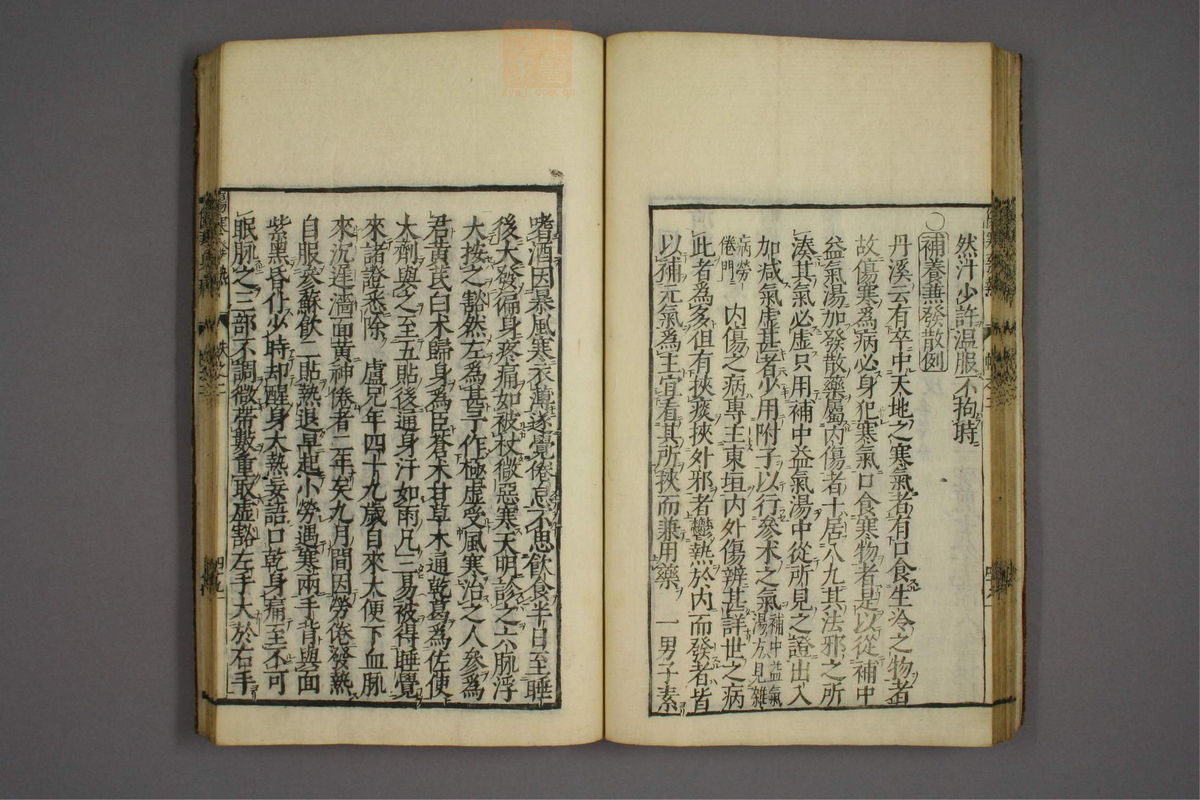 然汁少許温服不拘時
○補養兼發散例
丹溪云有卒中天地之寒氣者有口食生冷之物者
故傷寒為病必身犯寒氣口食寒物者是以從補中
益氣湯加發散藥屬内傷者十居八九其法邪之所
湊其氣必虚只用補中益氣湯中從所見之證出入
加减氣虚甚者少用附子以行參术之氣補中益氣湯方見雜
病勞倦門 内傷之病專主東垣内外傷辨甚詳世之病
此者為多但有挾痰挾外邪者鬱熱於内而發者皆
以補元氣為主宜看其所挾而兼用藥 一男子素
嗜酒因暴風寒衣薄遂覺倦怠不思飲食半日至睡
後大發偏身疼痛如被杖微惡寒天明診之六脉浮
大按之豁然左為甚予作極虚受風寒治之人參為
君黄芪白术歸身為臣蒼术甘草木通乾葛為佐使
大劑與之至五貼後通身汗如雨凡三易被得睡覺
來諸證悉除 盧兄年四十九歳自來大便下血脉
來沉遲濇面黄神倦者二年矣九月間因勞倦發熱
自服參蘇飲二貼熱退早起小勞遇寒兩手背與面
紫黑昏仆少時却醒身大熱妄語口乾身痛至不可
眠脉之三部不調微帶數重取虚豁左手大於右手